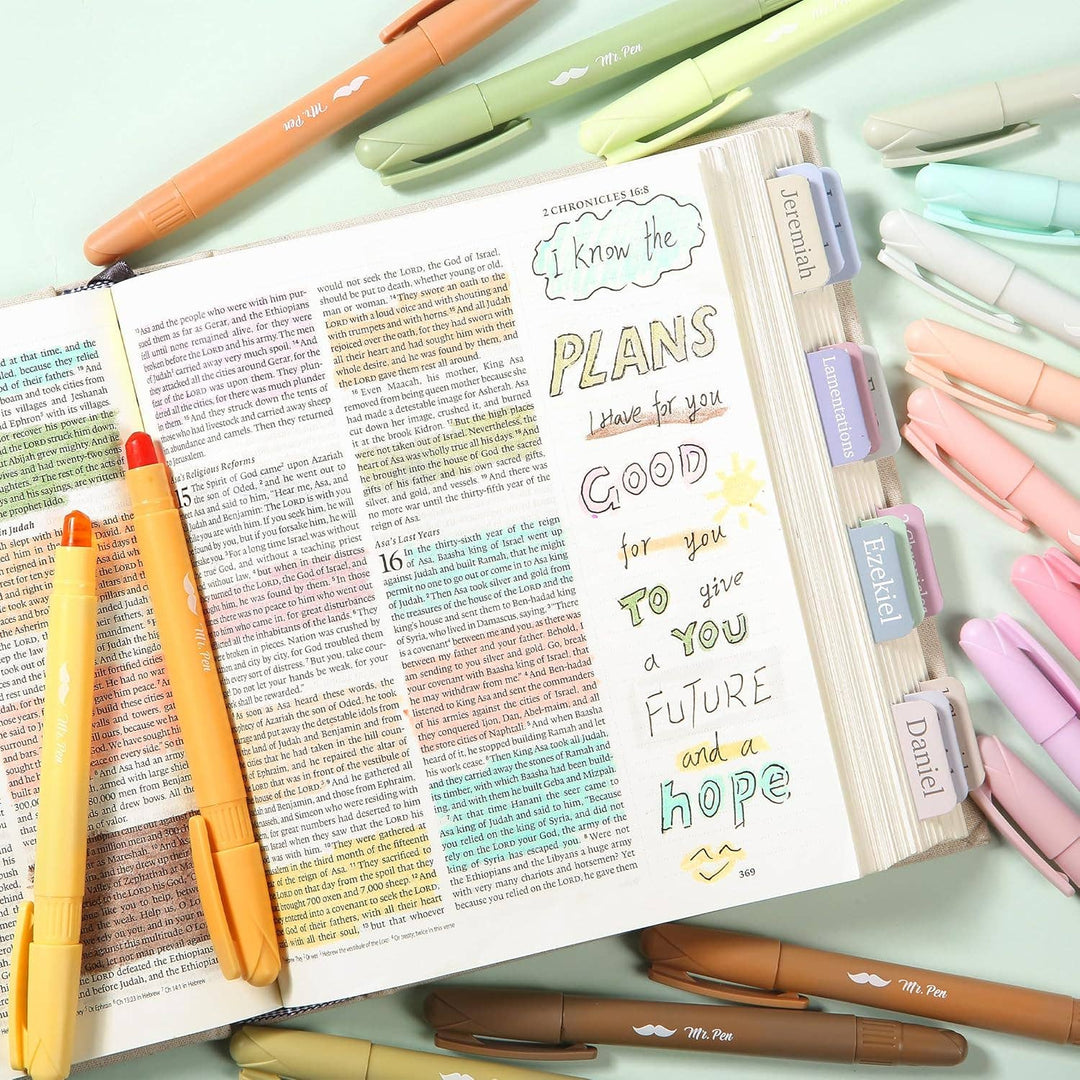 Mr. Pen
Mr. Pen
Mr. Pen
2 CHRONICLES 16:8
I know the
PLANS
I Have for you
GOOD
for you
TO give
a YOU
FUTURE
and a
hope
369
Jeremiah
Lamentations
Ezekiel
Daniel
at that time, and the
because they relied
of their fathers.
and took cities from
its villages and Jeshanah
with its villages.
not recover his power in the
the LORD struck him down,
Abijah grew mighty. And he
and had twenty-two sons
The rest of the acts of
and his sayings, are written in
prophet Iddo.
in Judah
¹³Asa and the people who were with him pur-
sued them as far as Gerar, and the Ethiopians
fell until none remained alive, for they were
broken before the LORD and his army. The men
of Judah carried away very much spoil. ¹⁴And
they attacked all the cities around Gerar, for the
fear of the LORD was upon them. They plun-
dered all the cities, for there was much plunder
in them. ¹⁵And they struck down the tents of
those who had livestock and carried away sheep
in abundance and camels. Then they returned
to Jerusalem.
Religious Reforms
15 The Spirit of God came upon Azariah
the son of Oded, ²and he went out to
meet Asa and said to him, "Hear me, Asa, and
all Judah and Benjamin: The LORD is with you
while you are with him. If you seek him, he will
be found by you, but if you forsake him, he will
forsake you. ³For a long time Israel was without
the true God, and without a teaching priest
and without law, ⁴but when in their distress
they turned to the LORD, the God of Israel, and
sought him, he was found by them. ⁵In those
times there was no peace to him who went out
or to him who came in, for great disturbances
afflicted all the inhabitants of the lands. ⁶They
were broken in pieces. Nation was crushed by
nation and city by city, for God troubled them
with every sort of distress. ⁷But you, take cour-
age! Do not let your hands be weak, for your
work shall be rewarded."
⁸As soon as Asa heard these words, the
prophecy of Azariah the son of Oded, he took
courage and put away the detestable idols from
all the land of Judah and Benjamin and from
the cities that he had taken in the hill country
of Ephraim, and he repaired the altar of
the LORD that was in front of the vestibule of
the house of the LORD. ⁹And he gathered all
Judah and Benjamin, and those from Ephraim,
Manasseh, and Simeon who were residing with
them, for great numbers had deserted to him
from Israel when they saw that the LORD his
God was with him. ¹⁰They were gathered
at Jerusalem in the third month of the fifteenth
year of the reign of Asa. ¹¹They sacrificed to
the LORD on that day from the spoil that they
had brought 700 oxen and 7,000 sheep. ¹²And
they entered into a covenant to seek the LORD,
the God of their fathers, with all their heart
and with all their soul, ¹³but that whoever
would not seek the LORD, the God of Israel,
should be put to death, whether young or old,
man or woman. ¹⁴They swore an oath to the
LORD with a loud voice and with shouting and
with trumpets and with horns. ¹⁵And all Judah
rejoiced over the oath, for they had sworn with
all their heart and had sought him with their
whole desire, and he was found by them, and
the LORD gave them rest all around.
¹⁶Even Maacah, his mother, King Asa
removed from being queen mother because she
had made a detestable image for Asherah. Asa
cut down her image, crushed it, and burned
it at the brook Kidron. ¹⁷But the high places
were not taken out of Israel. Nevertheless, the
heart of Asa was wholly true all his days. ¹⁸And
he brought into the house of God the sacred
gifts of his father and his own sacred gifts,
silver, and gold, and vessels. ¹⁹And there was
no more war until the thirty-fifth year of the
reign of Asa.
Asa's Last Years
16 In the thirty-sixth year of the reign
of Asa, Baasha king of Israel went up
against Judah and built Ramah, that he might
permit no one to go out or come in to Asa king
of Judah. ²Then Asa took silver and gold from
the treasures of the house of the LORD and the
king's house and sent them to Ben-hadad king
of Syria, who lived in Damascus, saying, ³"There
is a covenant between me and you, as there was
between my father and your father. Behold, I
am sending to you silver and gold. Go, break
your covenant with Baasha king of Israel, that
he may withdraw from me." ⁴And Ben-hadad
listened to King Asa and sent the commanders
of his armies against the cities of Israel, and
they conquered Ijon, Dan, Abel-maim, and all
the store cities of Naphtali. ⁵And when Baasha
heard of it, he stopped building Ramah and let
his work cease. ⁶Then King Asa took all Judah,
and they carried away the stones of Ramah and
its timber, with which Baasha had been build-
ing, and with them he built Geba and Mizpah.
⁷At that time Hanani the seer came to
Asa king of Judah and said to him, "Because
you relied on the king of Syria, and did not
rely on the LORD your God, the army of the
king of Syria has escaped you. ⁸Were not
the Ethiopians and the Libyans a huge army
with very many chariots and horsemen? Yet
because you relied on the LORD, he gave them
Mr. Pen
Mr. Pen
Mr. Pen
Mr. Pen